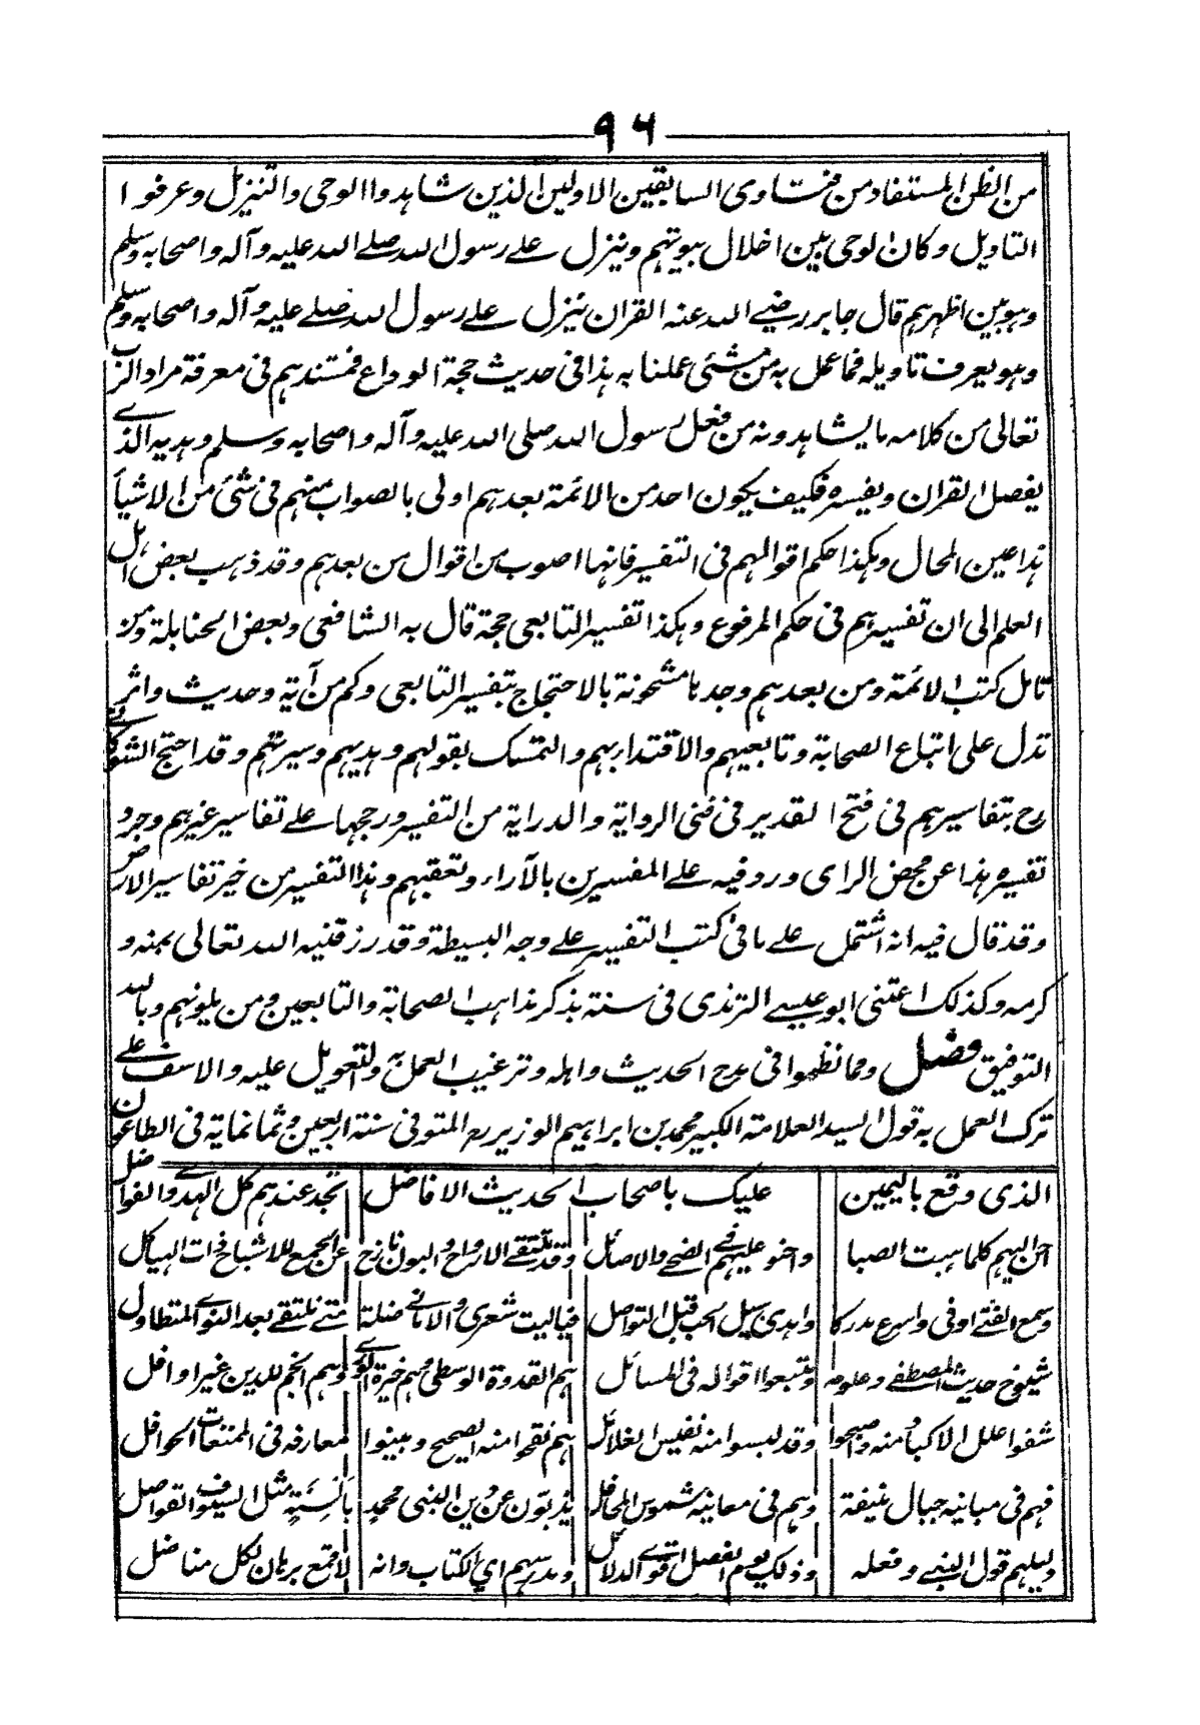 ٩٦
من الظن المستفاد من فتاوى السابقين الاولين الذين شاهدوا الوحى والتنزيل وعرفوا
التاويل وكان الوحى بين اخلال بيوتهم وينزل على رسول الله صلى الله عليه وآله واصحابه وسلم
وهو بين اظهرهم قال جابر رضى الله عنه القران ينزل على رسول الله صلى عليه وآله واصحابه وسلم
وهو يعرف تاويله فما عمل به من شئى عملنا به هذا فى حديث حجة الوداع فمستندهم فى معرفة مراد الرب
تعالى من كلامه ما يشاهدونه من فعل رسول الله صلى الله عليه وآله واصحابه وسلم وهديه الذى
يفصل القران ويفسره فكيف يكون احد من الائمة بعدهم اولى بالصواب منهم فى شئى من الاشياء
هذا عين المحال وهكذا حكم اقوالهم فى التفسير فانها اصوب من اقوال من بعدهم وقد ذهب بعض اهل
العلم الى ان تفسيرهم فى حكم المرفوع وهكذا تفسير التابعى حجة قال به الشافعى وبعض الحنابلة ومن
تامل كتب الائمة ومن بعدهم وجدها مشحونة بالاحتجاج بتفسير التابعى وكم من آية وحديث واثر
تدل على اتباع الصحابة وتابعيهم والاقتداء بهم والتمسك بقولهم وهديهم وسيرتهم وقد احتج الشوكانى
رح بتفاسيرهم فى فتح القدير فى فنى الرواية والدراية من التفسير ورجحها على تفاسير غيرهم وجرد
تفسيره هذا عن محض الراى ورد فيه على المفسرين بالآراء وتعقبهم وهذا التفسير من خير تفاسير الارض
وقد قال فيه انه اشتمل على ما فى كتب التفسير على وجه البسيطة وقد رزقنيه الله تعالى بمنه و
كرمه وكذلك اعتنى ابو عيسى الترمذى فى سننه بذكر مذاهب الصحابة والتابعين ومن يلونهم وبالله
التوفيق فصل ومما نظموا فى مدح الحديث واهله وترغيب العمل به والتعويل عليه والاسف على
ترك العمل به قول السيد العلامة الكبير محمد بن ابراهيم الوزير رح المتوفى سنة اربعين وثمانماية فى الطاعون
الذى وقع باليمين عليك باصحاب الحديث الافاضل تجد عندهم كل الهدى والفواضل
احن اليهم كلما هبت الصبا وادعو عليهم فى الضحى والاصائل وقد تلتقى الارواح والبون نازح عن الجمع للاشباخ ذات الهياكل
وسمع الفتى اوفى واسرع مدركا واهدى سبيل الحب قبل التواصل فياليت شعرى والامانى ضلة متى نلتقى بعد النوى المتطاول
شيوخ حديث المصطفى وعلومه ومتبعوا اقواله فى المسائل هم القدوة الوسطى وهم خيرة الورى وهم انجم للدين غير اوافل
شفوا علل الاكباد منه واصبحوا وقد لبسوا منه نفيس الغلائل هم نقحوا منه الصحيح وبينوا معارفه فى الممتعات الحوافل
فهم فى مبانيه جبال منيفة وهم فى معانيه شموس المحافل يذبون عن دين النبى محمد بالسنة مثل السيوف القواصل
دليلهم قول النبى وفعله وذلك يوم الفصل اقوى الدلائل ومدرسهم اى الكتاب وانه لاقمع برهان لكل مناضل